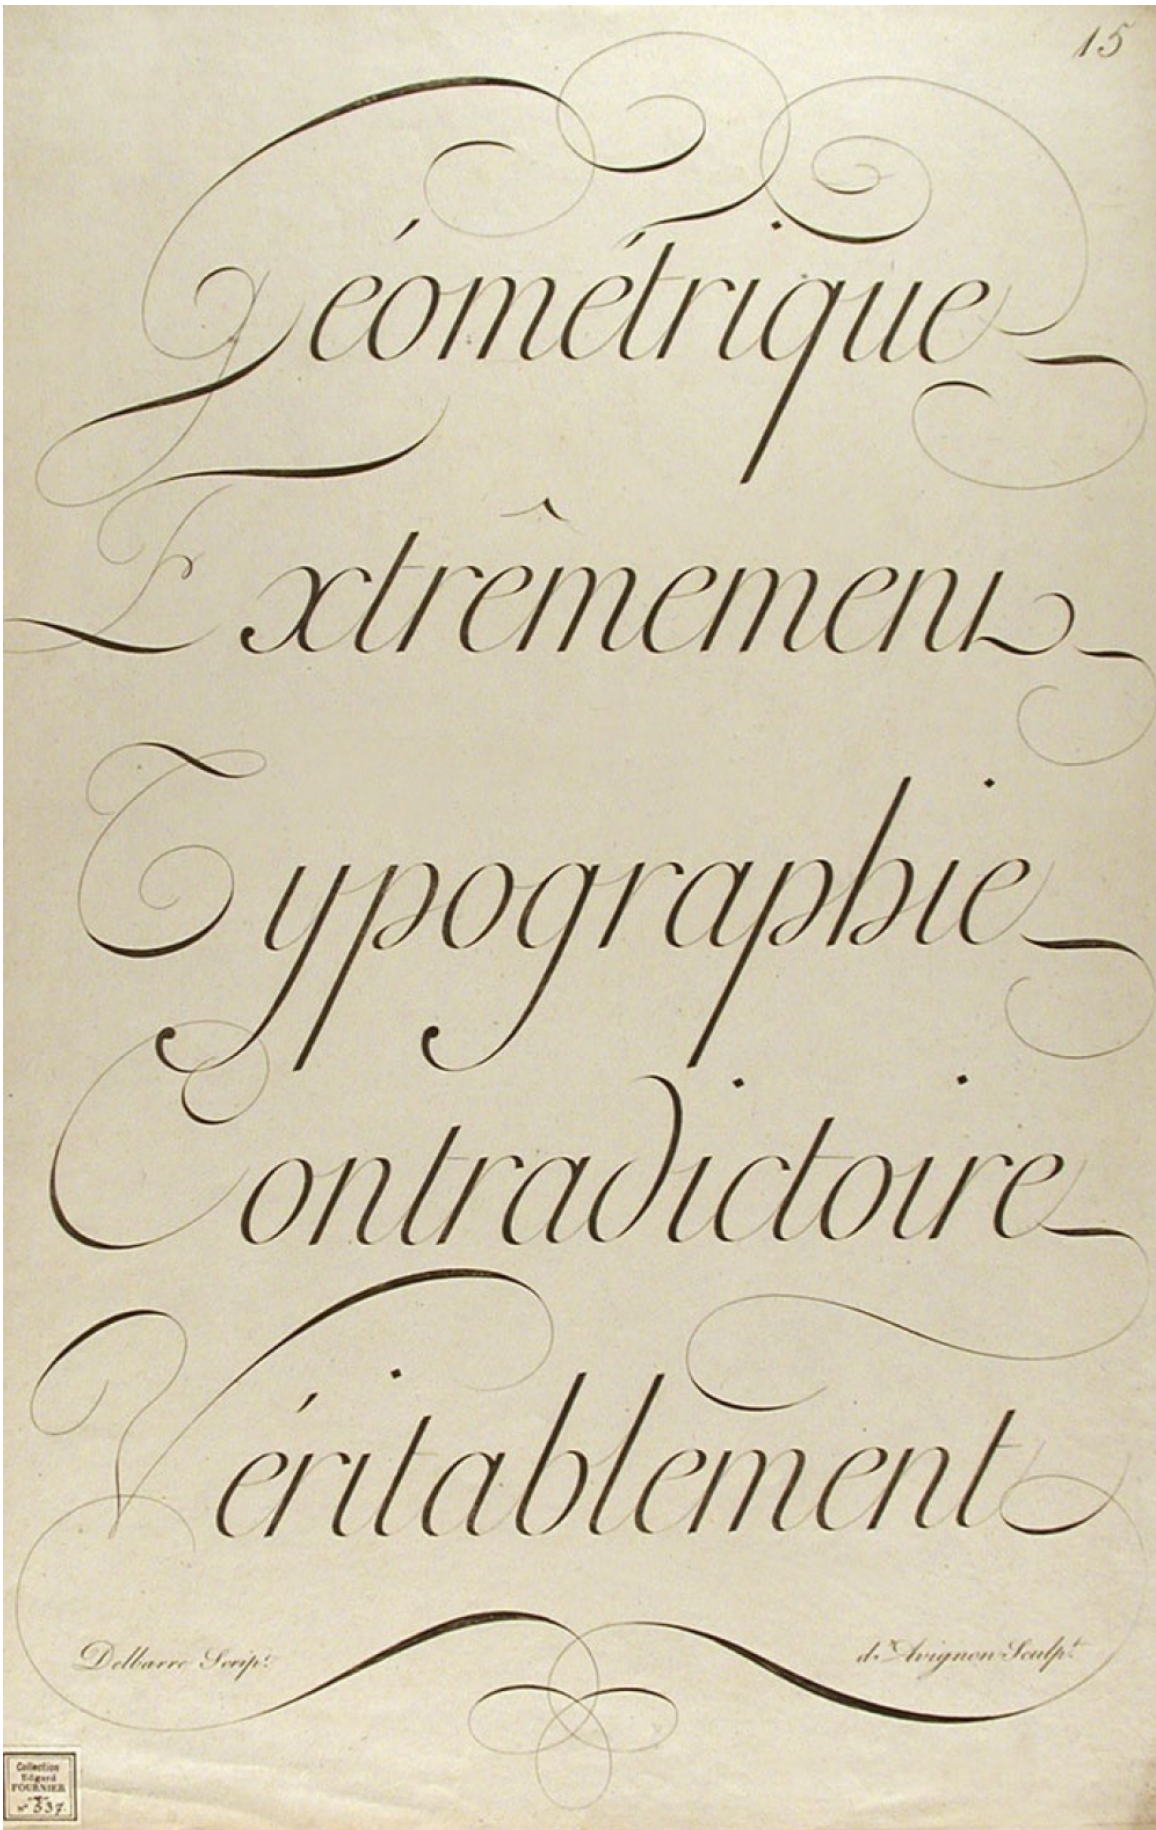 15
Géométrique
Extrêmement
Typographie
Contradictoire
Véritablement
Delbarre Scrip.t
d'Avignon Sculp.t
Collection
Edgard
FOURNIER
n° 337